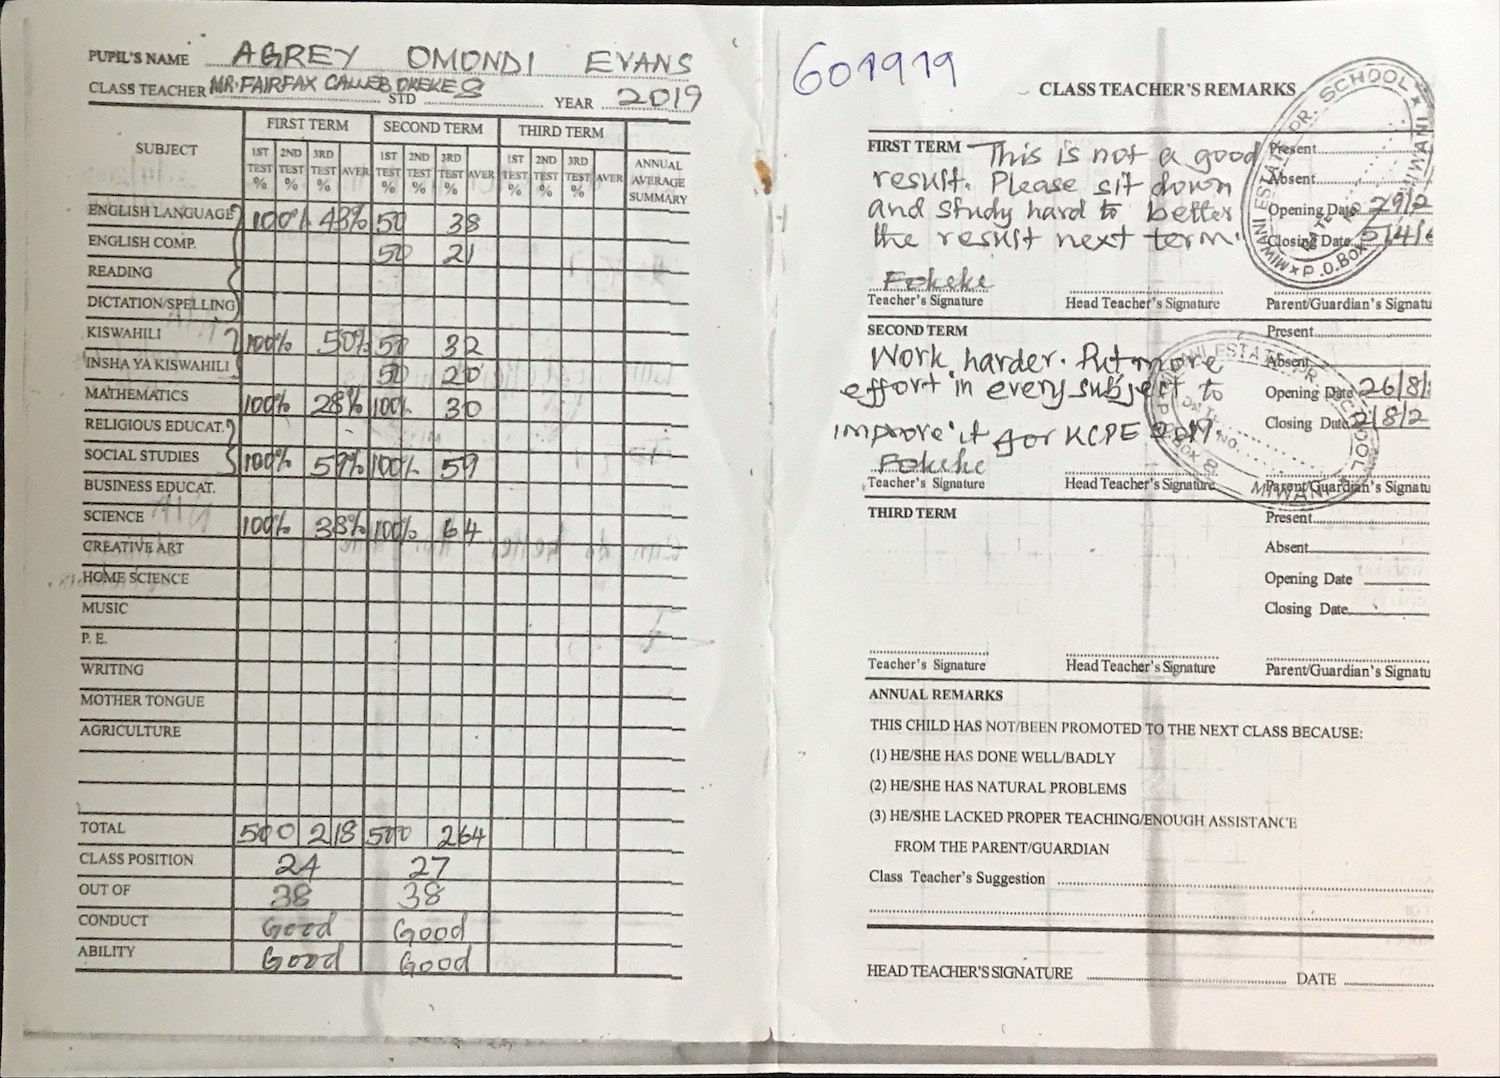 PUPIL'S NAME AGREY OMONDI EVANS
CLASS TEACHER MR. FAIRFAX CALLEB OKEKE STD 8 YEAR 2019
SUBJECT FIRST TERM SECOND TERM THIRD TERM
1ST TEST % 2ND TEST % 3RD TEST % AVER 1ST TEST % 2ND TEST % 3RD TEST % AVER 1ST TEST % 2ND TEST % 3RD TEST % AVER ANNUAL AVERAGE SUMMARY
ENGLISH LANGUAGE 100% 43% 50 38
ENGLISH COMP. 50 21
READING
DICTATION/SPELLING
KISWAHILI 100% 50% 50 32
INSHA YA KISWAHILI 50 20
MATHEMATICS 100% 28% 100% 30
RELIGIOUS EDUCAT.
SOCIAL STUDIES 100% 59% 100% 59
BUSINESS EDUCAT.
SCIENCE 100% 38% 100% 64
CREATIVE ART
HOME SCIENCE
MUSIC
P. E.
WRITING
MOTHER TONGUE
AGRICULTURE
TOTAL 500 218 500 264
CLASS POSITION 24 27
OUT OF 38 38
CONDUCT Good Good
ABILITY Good Good
601919
CLASS TEACHER'S REMARKS
FIRST TERM This is not a good
result. Please sit down
and study hard to better
the result next term.
Present
Absent
Opening Date 29/2
Closing Date 5/4/
Fokeke
Teacher's Signature Head Teacher's Signature Parent/Guardian's Signatu
MIWANI ESTATE PR. SCHOOL
P.O. Box
DATE
SECOND TERM
Work harder. Put more
effort in every subject to
improve it for KCPE 2019.
Present
Absent
Opening Date 26/8/
Closing Date 2/8/2
Fokeke
Teacher's Signature Head Teacher's Signature Parent/Guardian's Signatu
MIWANI ESTATE PR. SCHOOL
MIWANI
THIRD TERM
Present
Absent
Opening Date
Closing Date
Teacher's Signature Head Teacher's Signature Parent/Guardian's Signatu
ANNUAL REMARKS
THIS CHILD HAS NOT/BEEN PROMOTED TO THE NEXT CLASS BECAUSE:
(1) HE/SHE HAS DONE WELL/BADLY
(2) HE/SHE HAS NATURAL PROBLEMS
(3) HE/SHE LACKED PROPER TEACHING/ENOUGH ASSISTANCE
FROM THE PARENT/GUARDIAN
Class Teacher's Suggestion
HEAD TEACHER'S SIGNATURE DATE